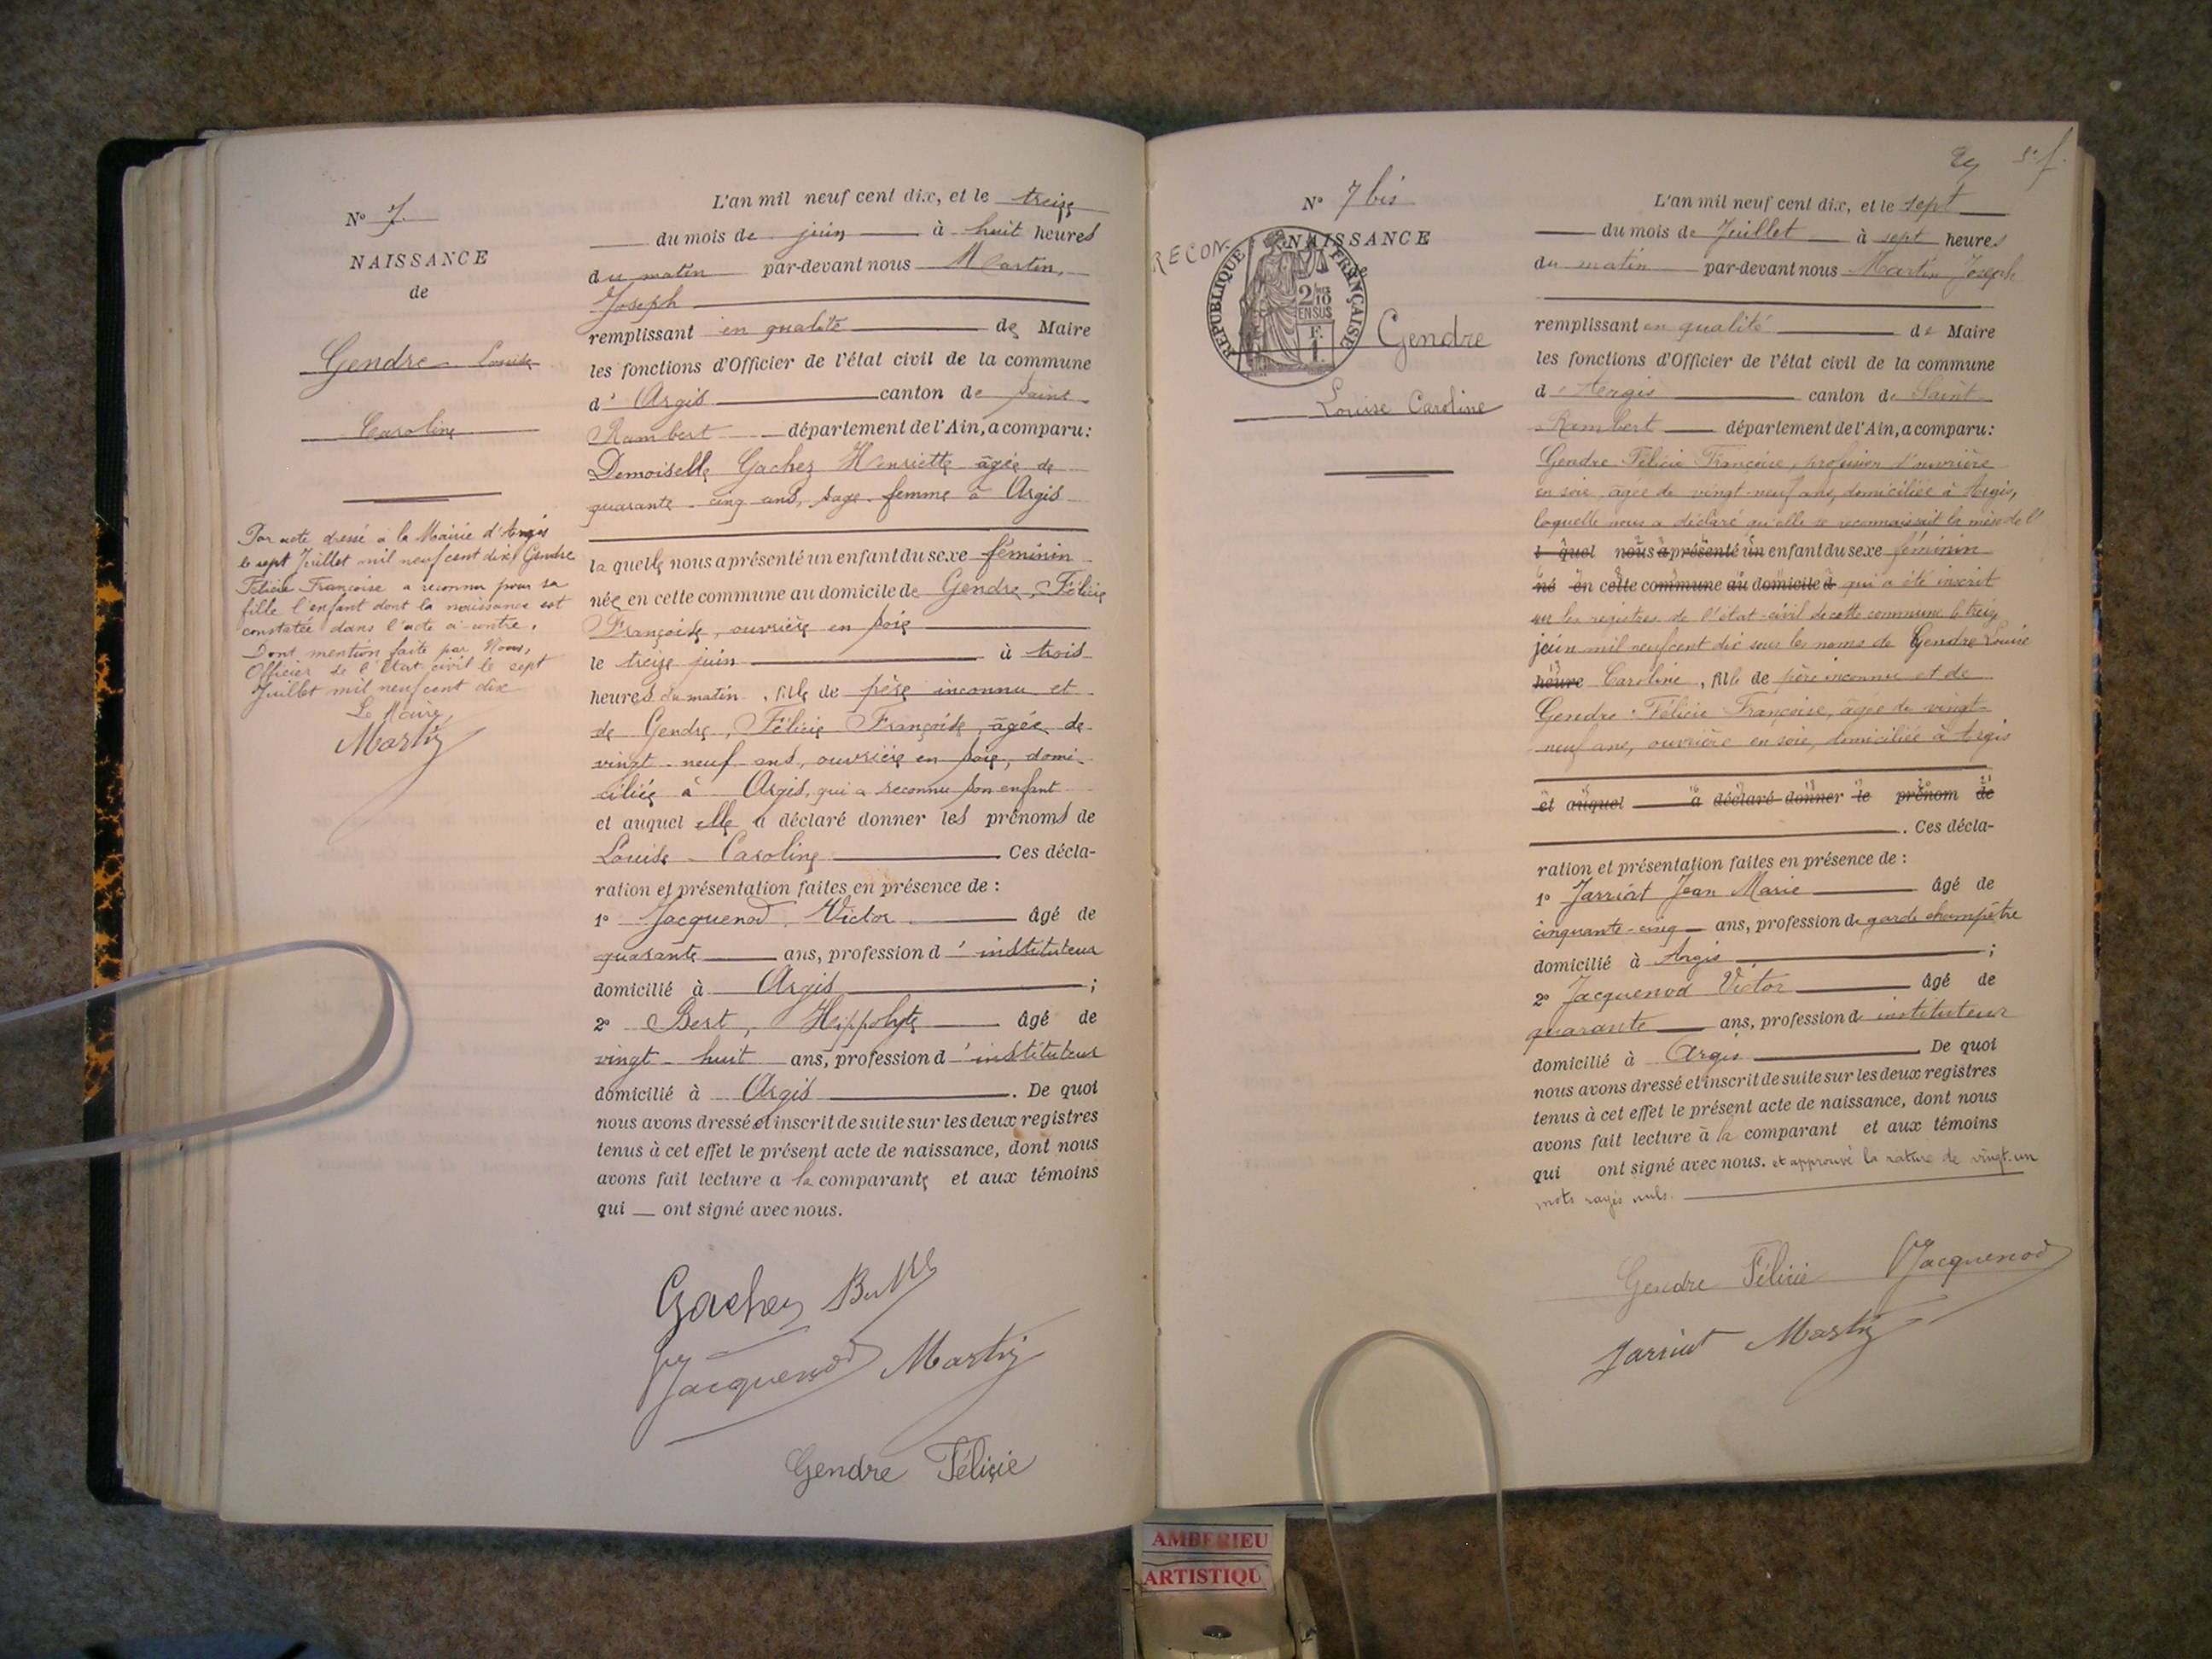 N° 7
NAISSANCE
de
Gendre Louise
Caroline
Par acte dressé à la Mairie d'Argis
le sept Juillet mil neuf cent dix Gendre
Félicie Françoise a reconnu pour sa
fille l'enfant dont la naissance est
constatée dans l'acte ci-contre.
Dont mention faite par Nous,
Officier de l'Etat civil le sept
Juillet mil neuf cent dix
Le Maire,
Martin
L'an mil neuf cent dix, et le treize
du mois de juin à huit heures
du matin par-devant nous Martin,
Joseph
remplissant en qualité de Maire
les fonctions d'Officier de l'état civil de la commune
d' Argis canton de Saint
Rambert département de l'Ain, a comparu:
Demoiselle Gachez Henriette âgée de
quarante-cinq ans, sage-femme à Argis
la quelle nous a présenté un enfant du sexe féminin
née en cette commune au domicile de Gendre, Félicie
Françoise, ouvrière en soie
le treize juin à trois
heures du matin, fille de père inconnu et
de Gendre, Félicie Françoise, âgée de
vingt-neuf ans, ouvrière en soie, domi-
ciliée à Argis, qui a reconnu son enfant
et auquel elle a déclaré donner les prénoms de
Louise Caroline. Ces décla-
ration et présentation faites en présence de :
1° Jacquenod, Victor âgé de
quarante ans, profession d'instituteur
domicilié à Argis ;
2° Bert, Hippolyte âgé de
vingt-huit ans, profession d'instituteur
domicilié à Argis. De quoi
nous avons dressé et inscrit de suite sur les deux registres
tenus à cet effet le présent acte de naissance, dont nous
avons fait lecture a la comparante et aux témoins
qui ont signé avec nous.
Gachez Bert
Jacquenod Martin
Gendre Félicie
N° 7 bis
RECON-
NAISSANCE
RÉPUBLIQUE FRANÇAISE
2/10
EN SUS
F.
1.
Gendre
Louise Caroline
L'an mil neuf cent dix, et le sept
du mois de Juillet à sept heures
du matin par-devant nous Martin Joseph
remplissant en qualité de Maire
les fonctions d'Officier de l'état civil de la commune
d'Argis canton de Saint
Rambert département de l'Ain, a comparu:
Gendre Félicie Françoise, profession d'ouvrière
en soie, âgée de vingt-neuf ans, domiciliée à Argis,
laquelle nous a déclaré qu'elle se reconnaissait la mère de l'
l quel nous a présenté un enfant du sexe féminin
né en cette commune au domicile d qui a été inscrit
sur les registres de l'état-civil de cette commune le treize
juin mil neuf cent dix sous les noms de Gendre Louise
heure Caroline, fille de père inconnu et de
Gendre Félicie Françoise, âgée de vingt-
neuf ans, ouvrière en soie, domiciliée à Argis
et auquel a déclaré donner le prénom de
. Ces décla-
ration et présentation faites en présence de :
1° Jarriot Jean Marie âgé de
cinquante-cinq ans, profession de garde champêtre
domicilié à Argis ;
2° Jacquenod Victor âgé de
quarante ans, profession d instituteur
domicilié à Argis. De quoi
nous avons dressé et inscrit de suite sur les deux registres
tenus à cet effet le présent acte de naissance, dont nous
avons fait lecture à la comparant et aux témoins
qui ont signé avec nous. et approuvé la rature de vingt-un
mots rayés nuls.
Gendre Félicie Jacquenod
Jarriot Martin
AMBERIEU
ARTISTIQU